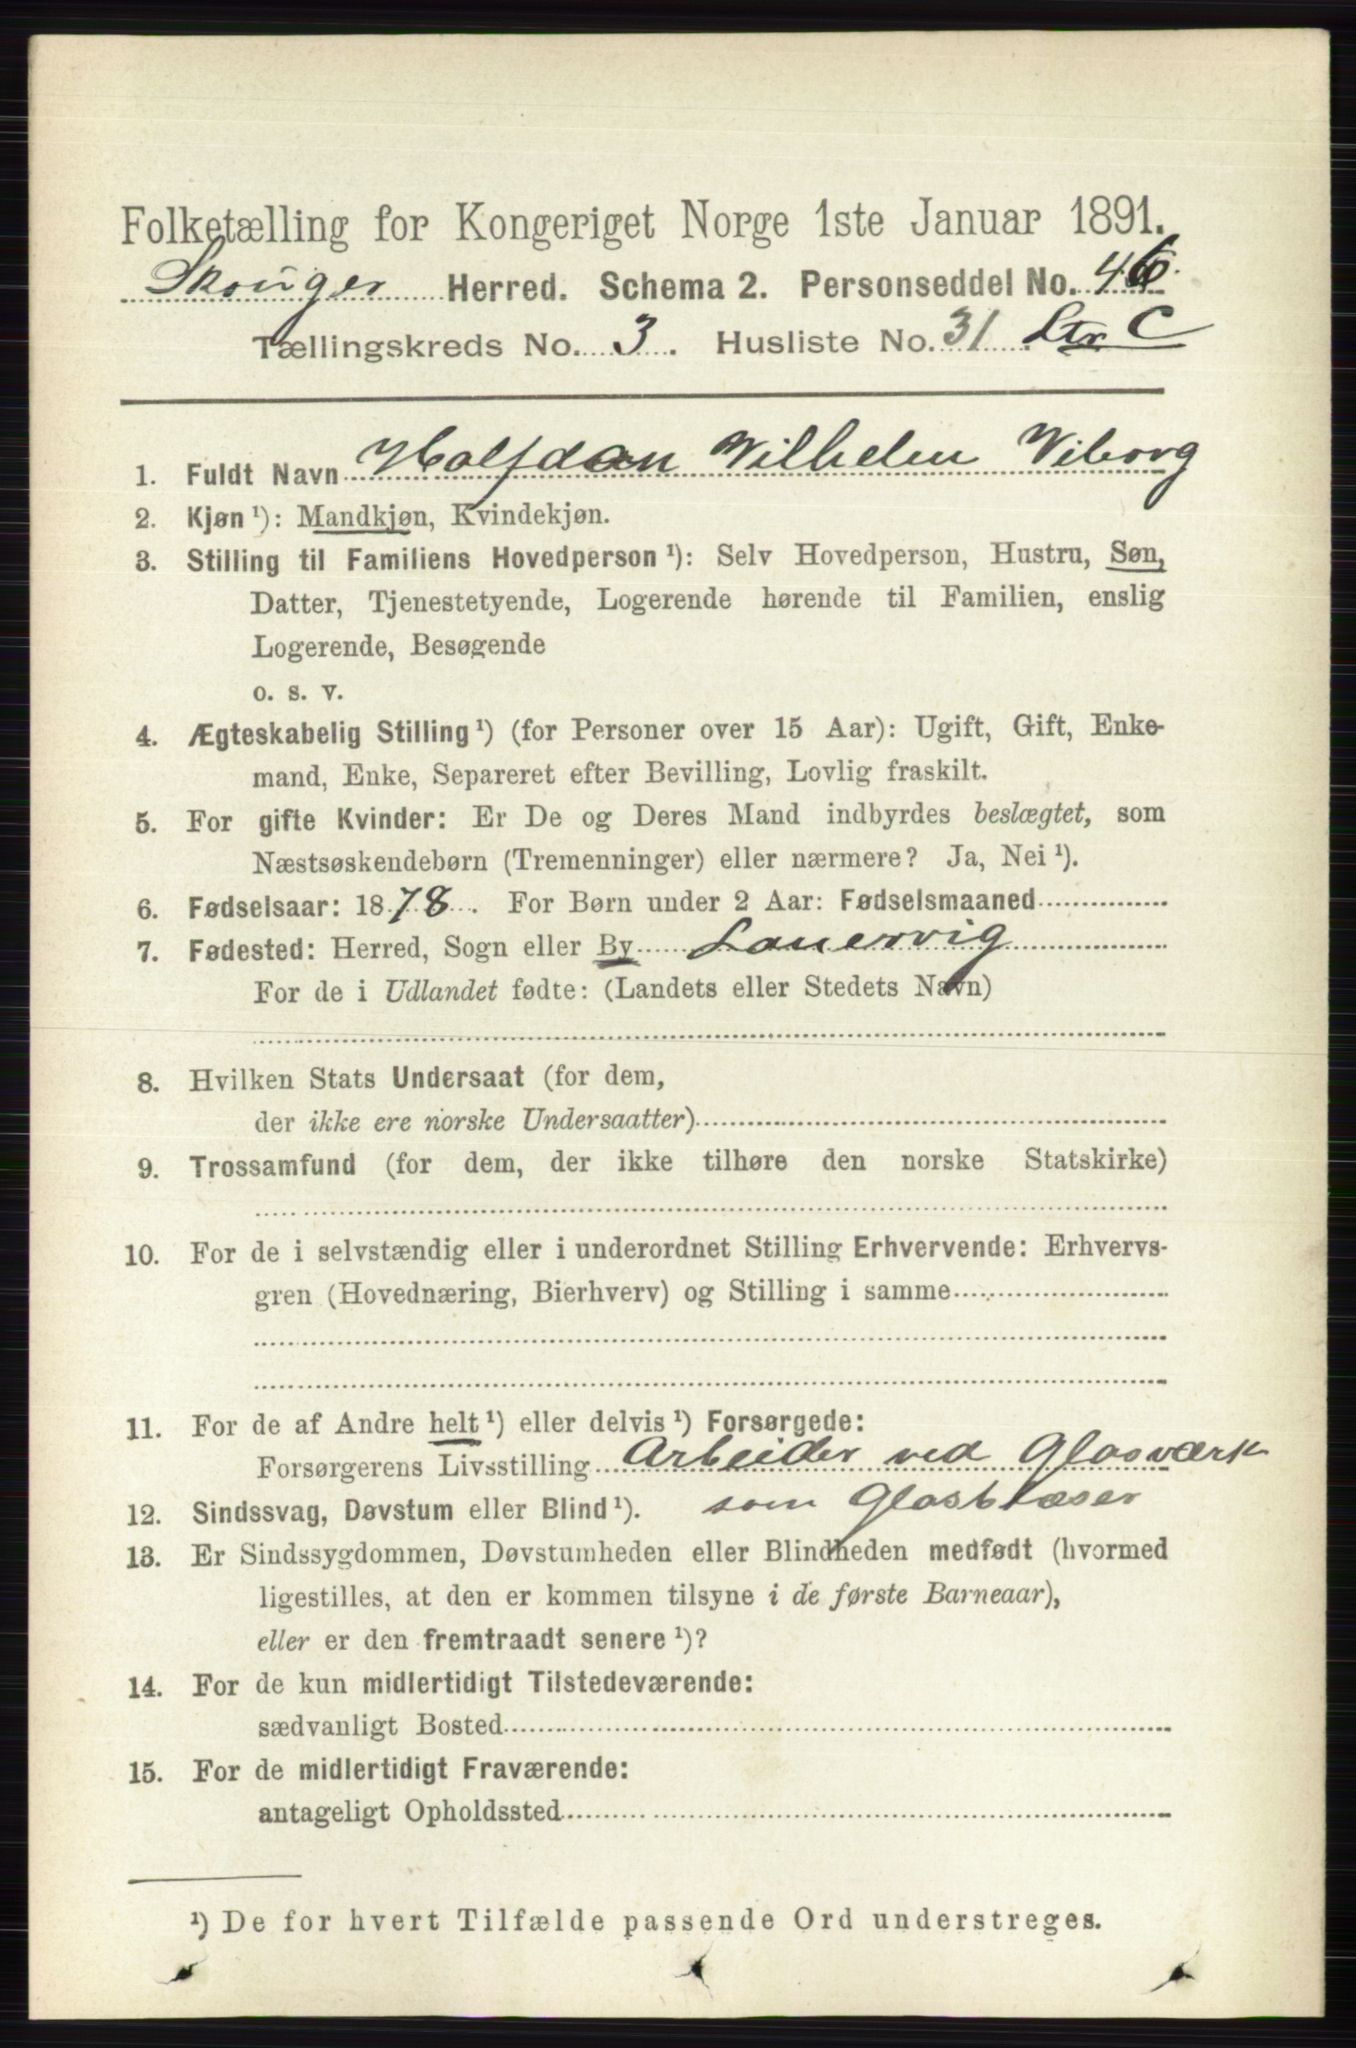 Folketælling for Kongeriget Norge 1ste Januar 1891.
Skouger Herred. Schema 2. Personseddel No. 46.
Tællingskreds No. 3. Husliste No. 31 Ltr C
1. Fuldt Navn Halfdan Vilhelm Viborg
2. Kjøn ¹): Mandkjøn, Kvindekjøn.
3. Stilling til Familiens Hovedperson ¹): Selv Hovedperson, Hustru, Søn,
Datter, Tjenestetyende, Logerende hørende til Familien, enslig
Logerende, Besøgende
o. s. v.
4. Ægteskabelig Stilling ¹) (for Personer over 15 Aar): Ugift, Gift, Enke-
mand, Enke, Separeret efter Bevilling, Lovlig fraskilt.
5. For gifte Kvinder: Er De og Deres Mand indbyrdes beslægtet, som
Næstsøskendebørn (Tremenninger) eller nærmere? Ja, Nei ¹).
6. Fødselsaar: 1878. For Børn under 2 Aar: Fødselsmaaned
7. Fødested: Herred, Sogn eller By Lauervig
For de i Udlandet fødte: (Landets eller Stedets Navn)
8. Hvilken Stats Undersaat (for dem,
der ikke ere norske Undersaatter)
9. Trossamfund (for dem, der ikke tilhøre den norske Statskirke)
10. For de i selvstændig eller i underordnet Stilling Erhvervende: Erhvervs-
gren (Hovednæring, Bierhverv) og Stilling i samme
11. For de af Andre helt ¹) eller delvis ¹) Forsørgede:
Forsørgerens Livsstilling Arbeider ved Glasværk
12. Sindssvag, Døvstum eller Blind ¹). som Glasblæser
13. Er Sindssygdommen, Døvstumheden eller Blindheden medfødt (hvormed
ligestilles, at den er kommen tilsyne i de første Barneaar),
eller er den fremtraadt senere ¹)?
14. For de kun midlertidigt Tilstedeværende:
sædvanligt Bosted
15. For de midlertidigt Fraværende:
antageligt Opholdssted
¹) De for hvert Tilfælde passende Ord understreges.